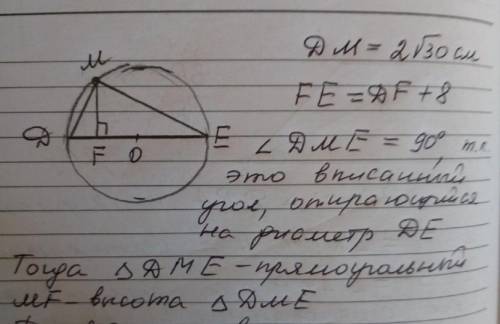 M
D
F
O
E
DM = 2√30 см
FE = DF + 8
∠ DME = 90°, т.к.
это вписанный
угол, опирающийся
на диаметр DE
Тогда △ DME - прямоугольный
MF - высота △ DME